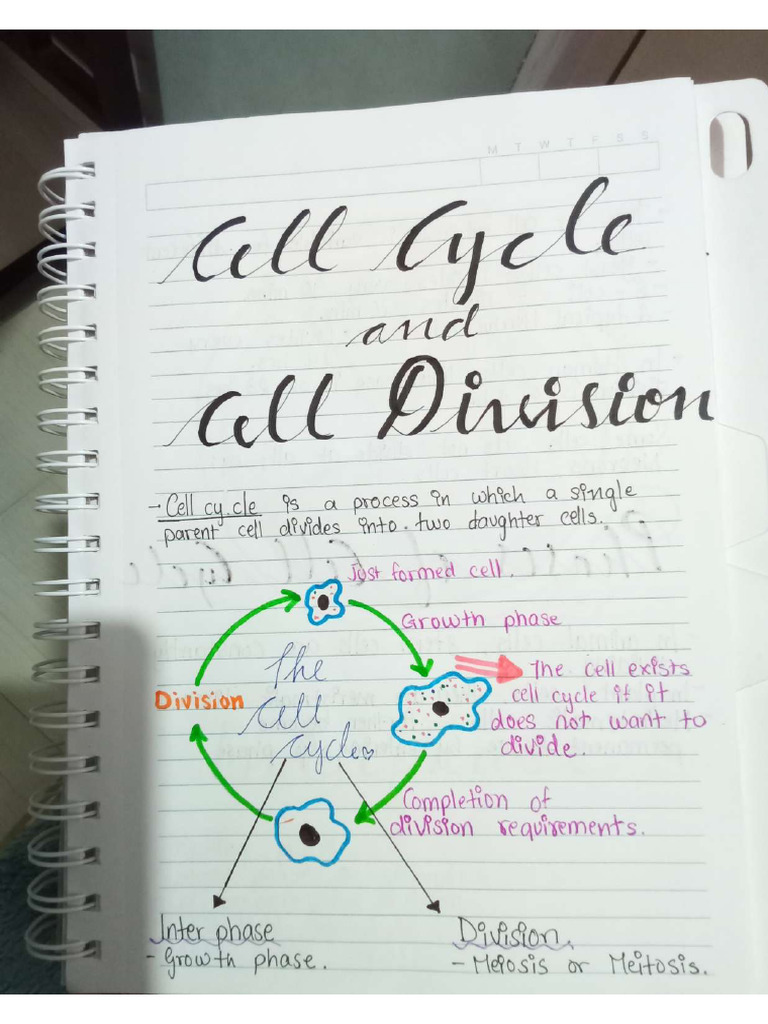 M T W T F S S
Cell Cycle
and
Cell Division
- Cell cycle is a process in which a single
parent cell divides into two daughter cells.
Just formed cell.
Growth phase
The cell exists
cell cycle if it
does not want to
divide.
Division
The
Cell
Cycle
Completion of
division requirements.
Inter phase
- Growth phase.
Division.
- Meiosis or Meitosis.